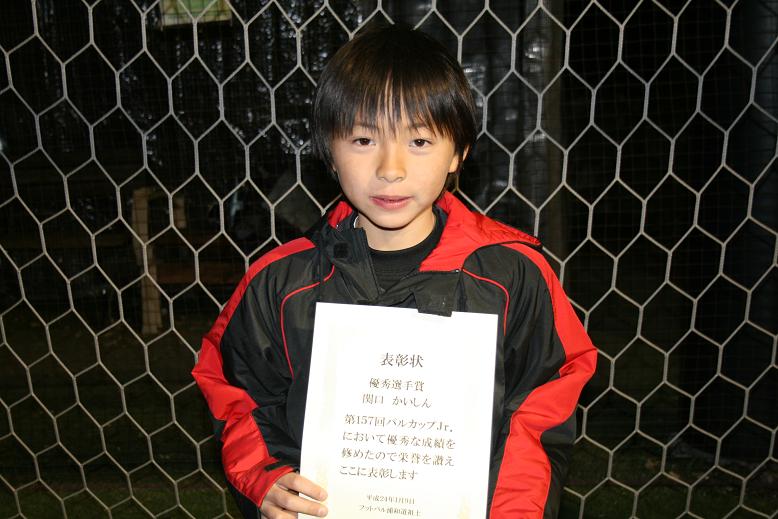 表彰状
優秀選手賞
関口 かいしん
第157回バルカップJr.
において優秀な成績を
修めたので栄誉を讃え
ここに表彰します
平成24年1月9日
フットバル浦和道祖土